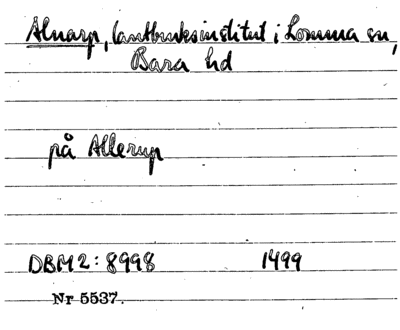 Alnarp, lantbruksinstitut i Lomma sn,
Bara hd
på Allerup
DBM2: 8998 1499
Nr 5537.